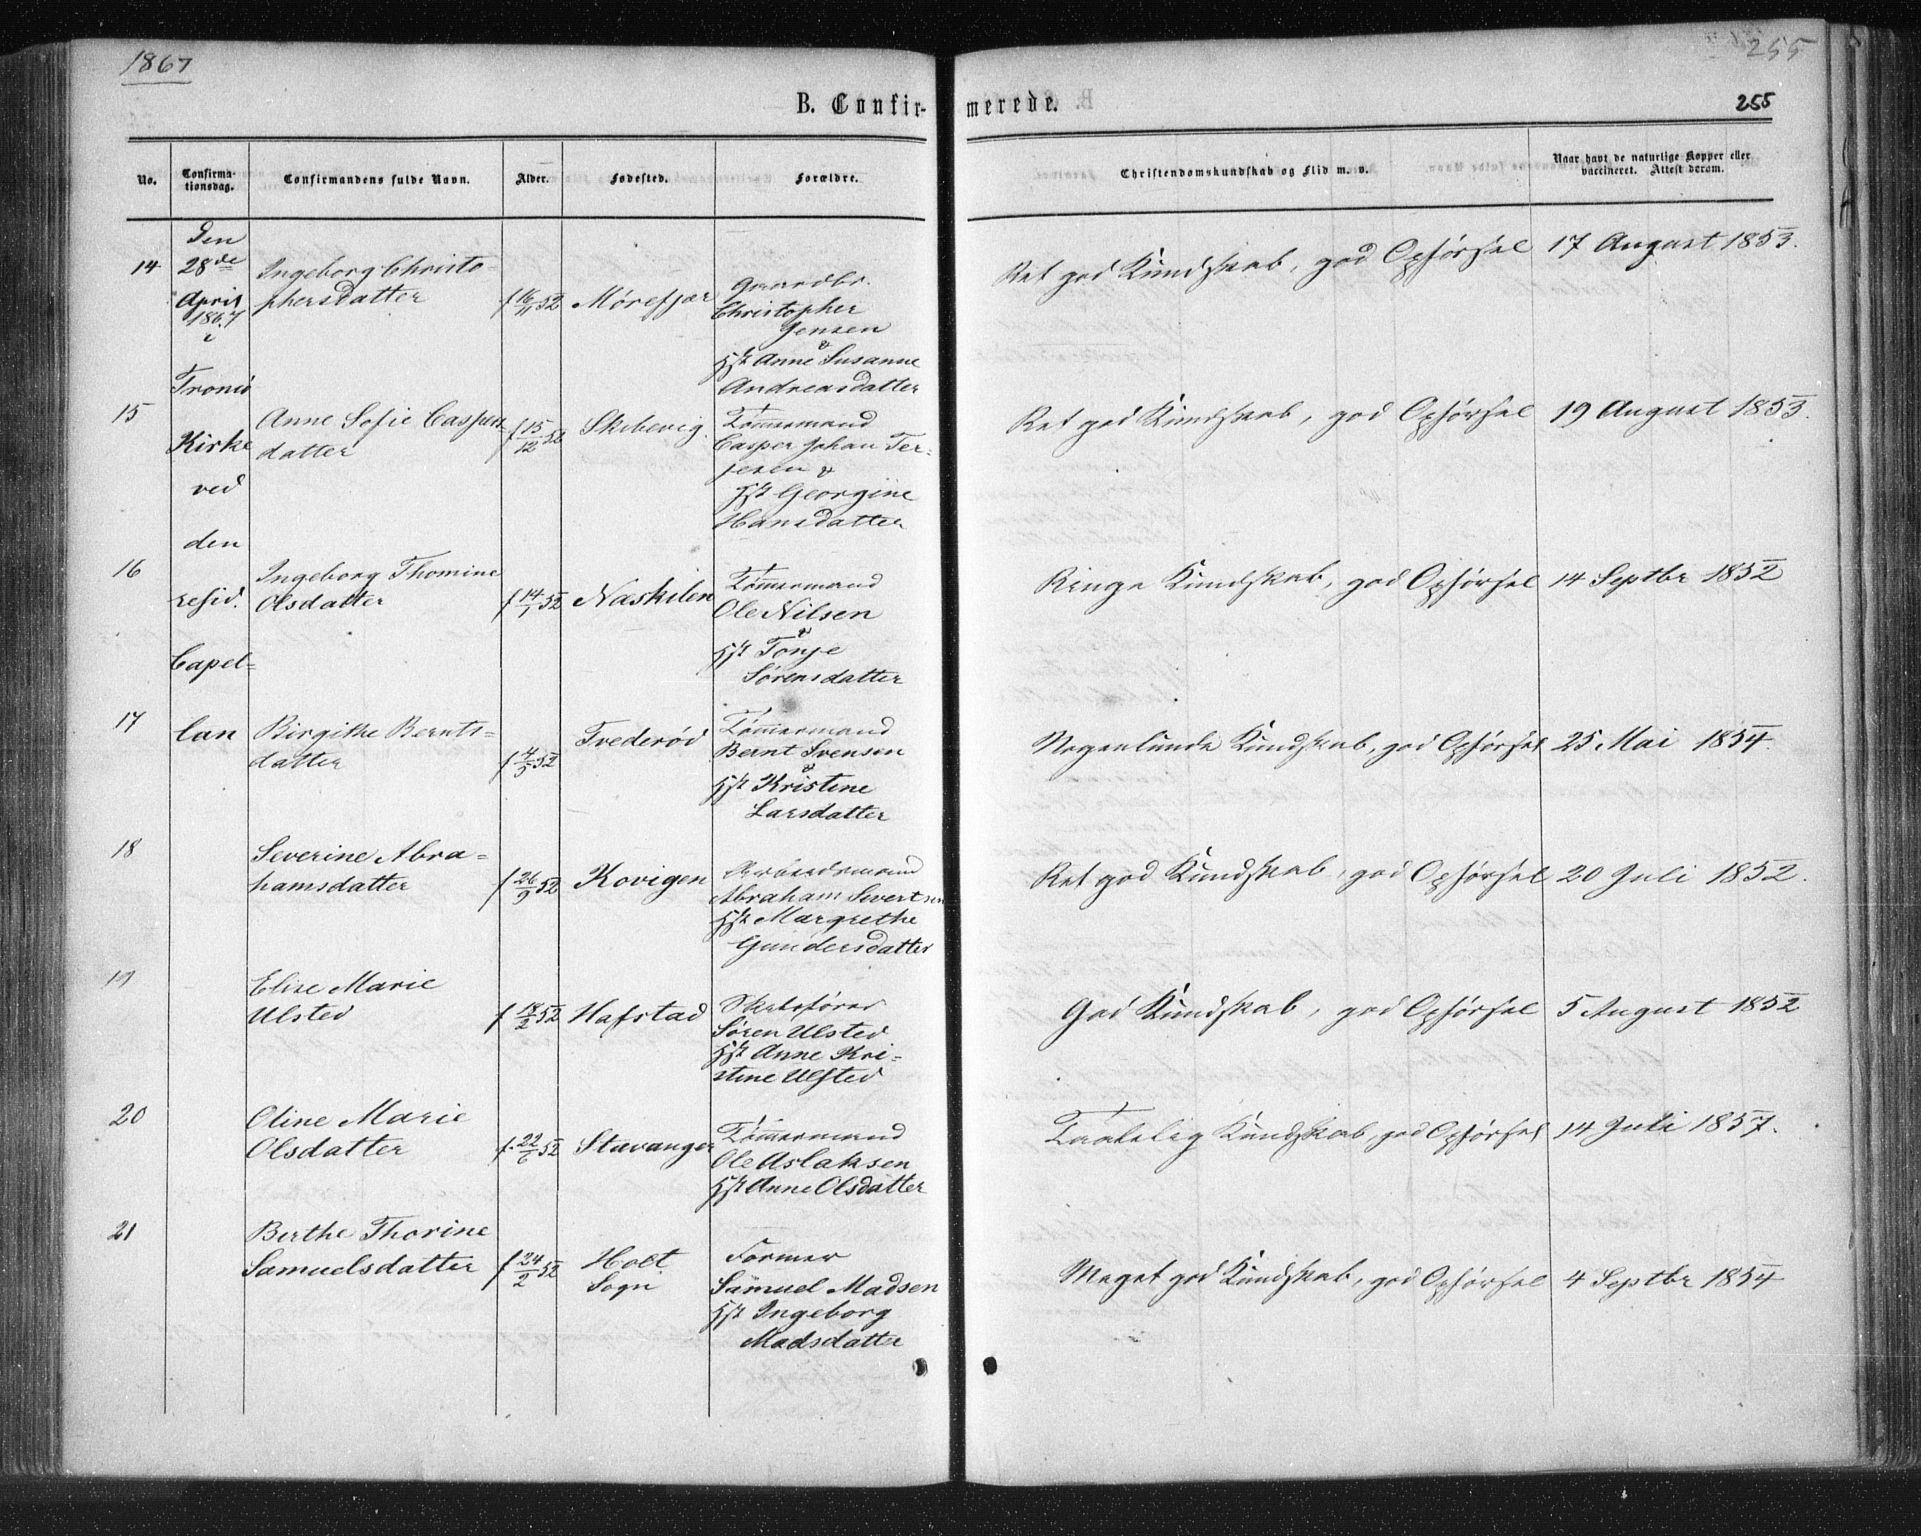 1867
255
B. Confirmerede.
255
No.
Confirmationsdag.
Confirmandens fulde Navn.
Alder.
Fødested.
Forældre.
Christendomskundskab og Flid m. v.
Naar havt de naturlige Kopper eller vaccineret. Attest derom.
Den
28de
April
1867
i
Tromø
Kirke
ved
den
resid.
Capel-
lan
14
Ingeborg Christo-
phersdatter
f 16/11 52
Mørefjær
Gaardbr.
Christopher
Jensen
&
Hst Anne Susanne
Andreasdatter
Ret god Kundskab, god Opførsel
17 August 1853.
15
Anne Sofie Caspers
datter
f 15/12 52
Skibevig
Tømmermand
Casper Johan Ter-
jesen &
Hst Georgine
Hansdatter
Ret god Kundskab, god Opførsel
19 August 1853.
16
Ingeborg Thomine
Olsdatter
f 14/1 52
Naskilen
Tømmermand
Ole Nilsen
&
Hst Tonje
Sørensdatter
Ringe Kundskab, god Opførsel
14 Septbr 1852
17
Birgithe Bernts-
datter
f 4/5 52
Tvederød
Tømmermand
Bernt Svensen
&
Hst Kristine
Larsdatter
Nogenlunde Kundskab, god Opførsel
25 Mai 1854.
18
Severine Abra-
hamsdatter
f 26/9 52
Kovigen
Arbeidsmand
Abraham Sivertsen
Hst Margrethe
Gundersdatter
Ret god Kundskab, god Opførsel
20 Juli 1852.
19
Elise Marie
Ulsted
f 18/2 52
Hafstad
Skibsfører
Søren Ulsted
Hst Anne Kri-
stine Ulsted
God Kundskab, god Opførsel
5 August 1852
20
Oline Marie
Olsdatter
f. 22/6 52
Stavanger
Tømmermand
Ole Aslaksen
Hst Anne Olsdatter
Taalelig Kundskab, god Opførsel
14 Juli 1857.
21
Berthe Thorine
Samuelsdatter
f 24/2 52
Holt
Sogn
Former
Samuel Madsen
Hst Ingeborg
Madsdatter
Meget god Kundskab, god Opførsel
4 Septbr 1854